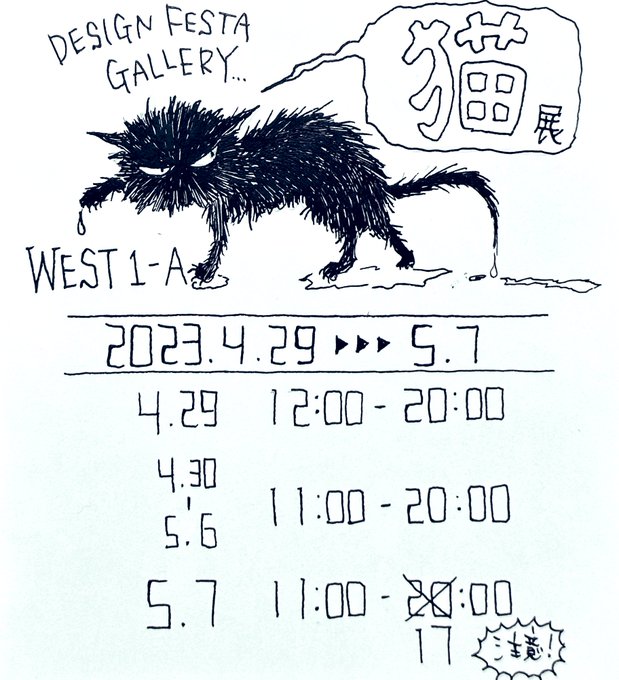 DESIGN FESTA
GALLERY...
猫展
WEST 1-A
2023.4.29 ▶▶▶ 5.7
4.29 12:00 - 20:00
4.30
-
5.6
11:00 - 20:00
5.7 11:00 - 20:00
17
注意!